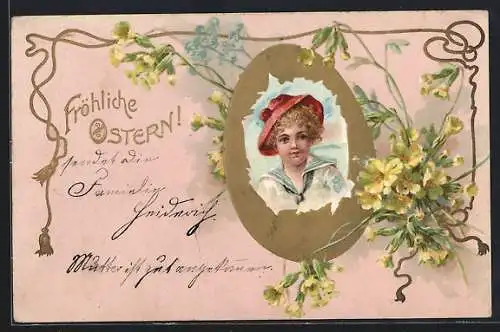 Fröhliche
OSTERN!
sendet die
Familie
Heiderich.
Mutter ist gut angekommen.